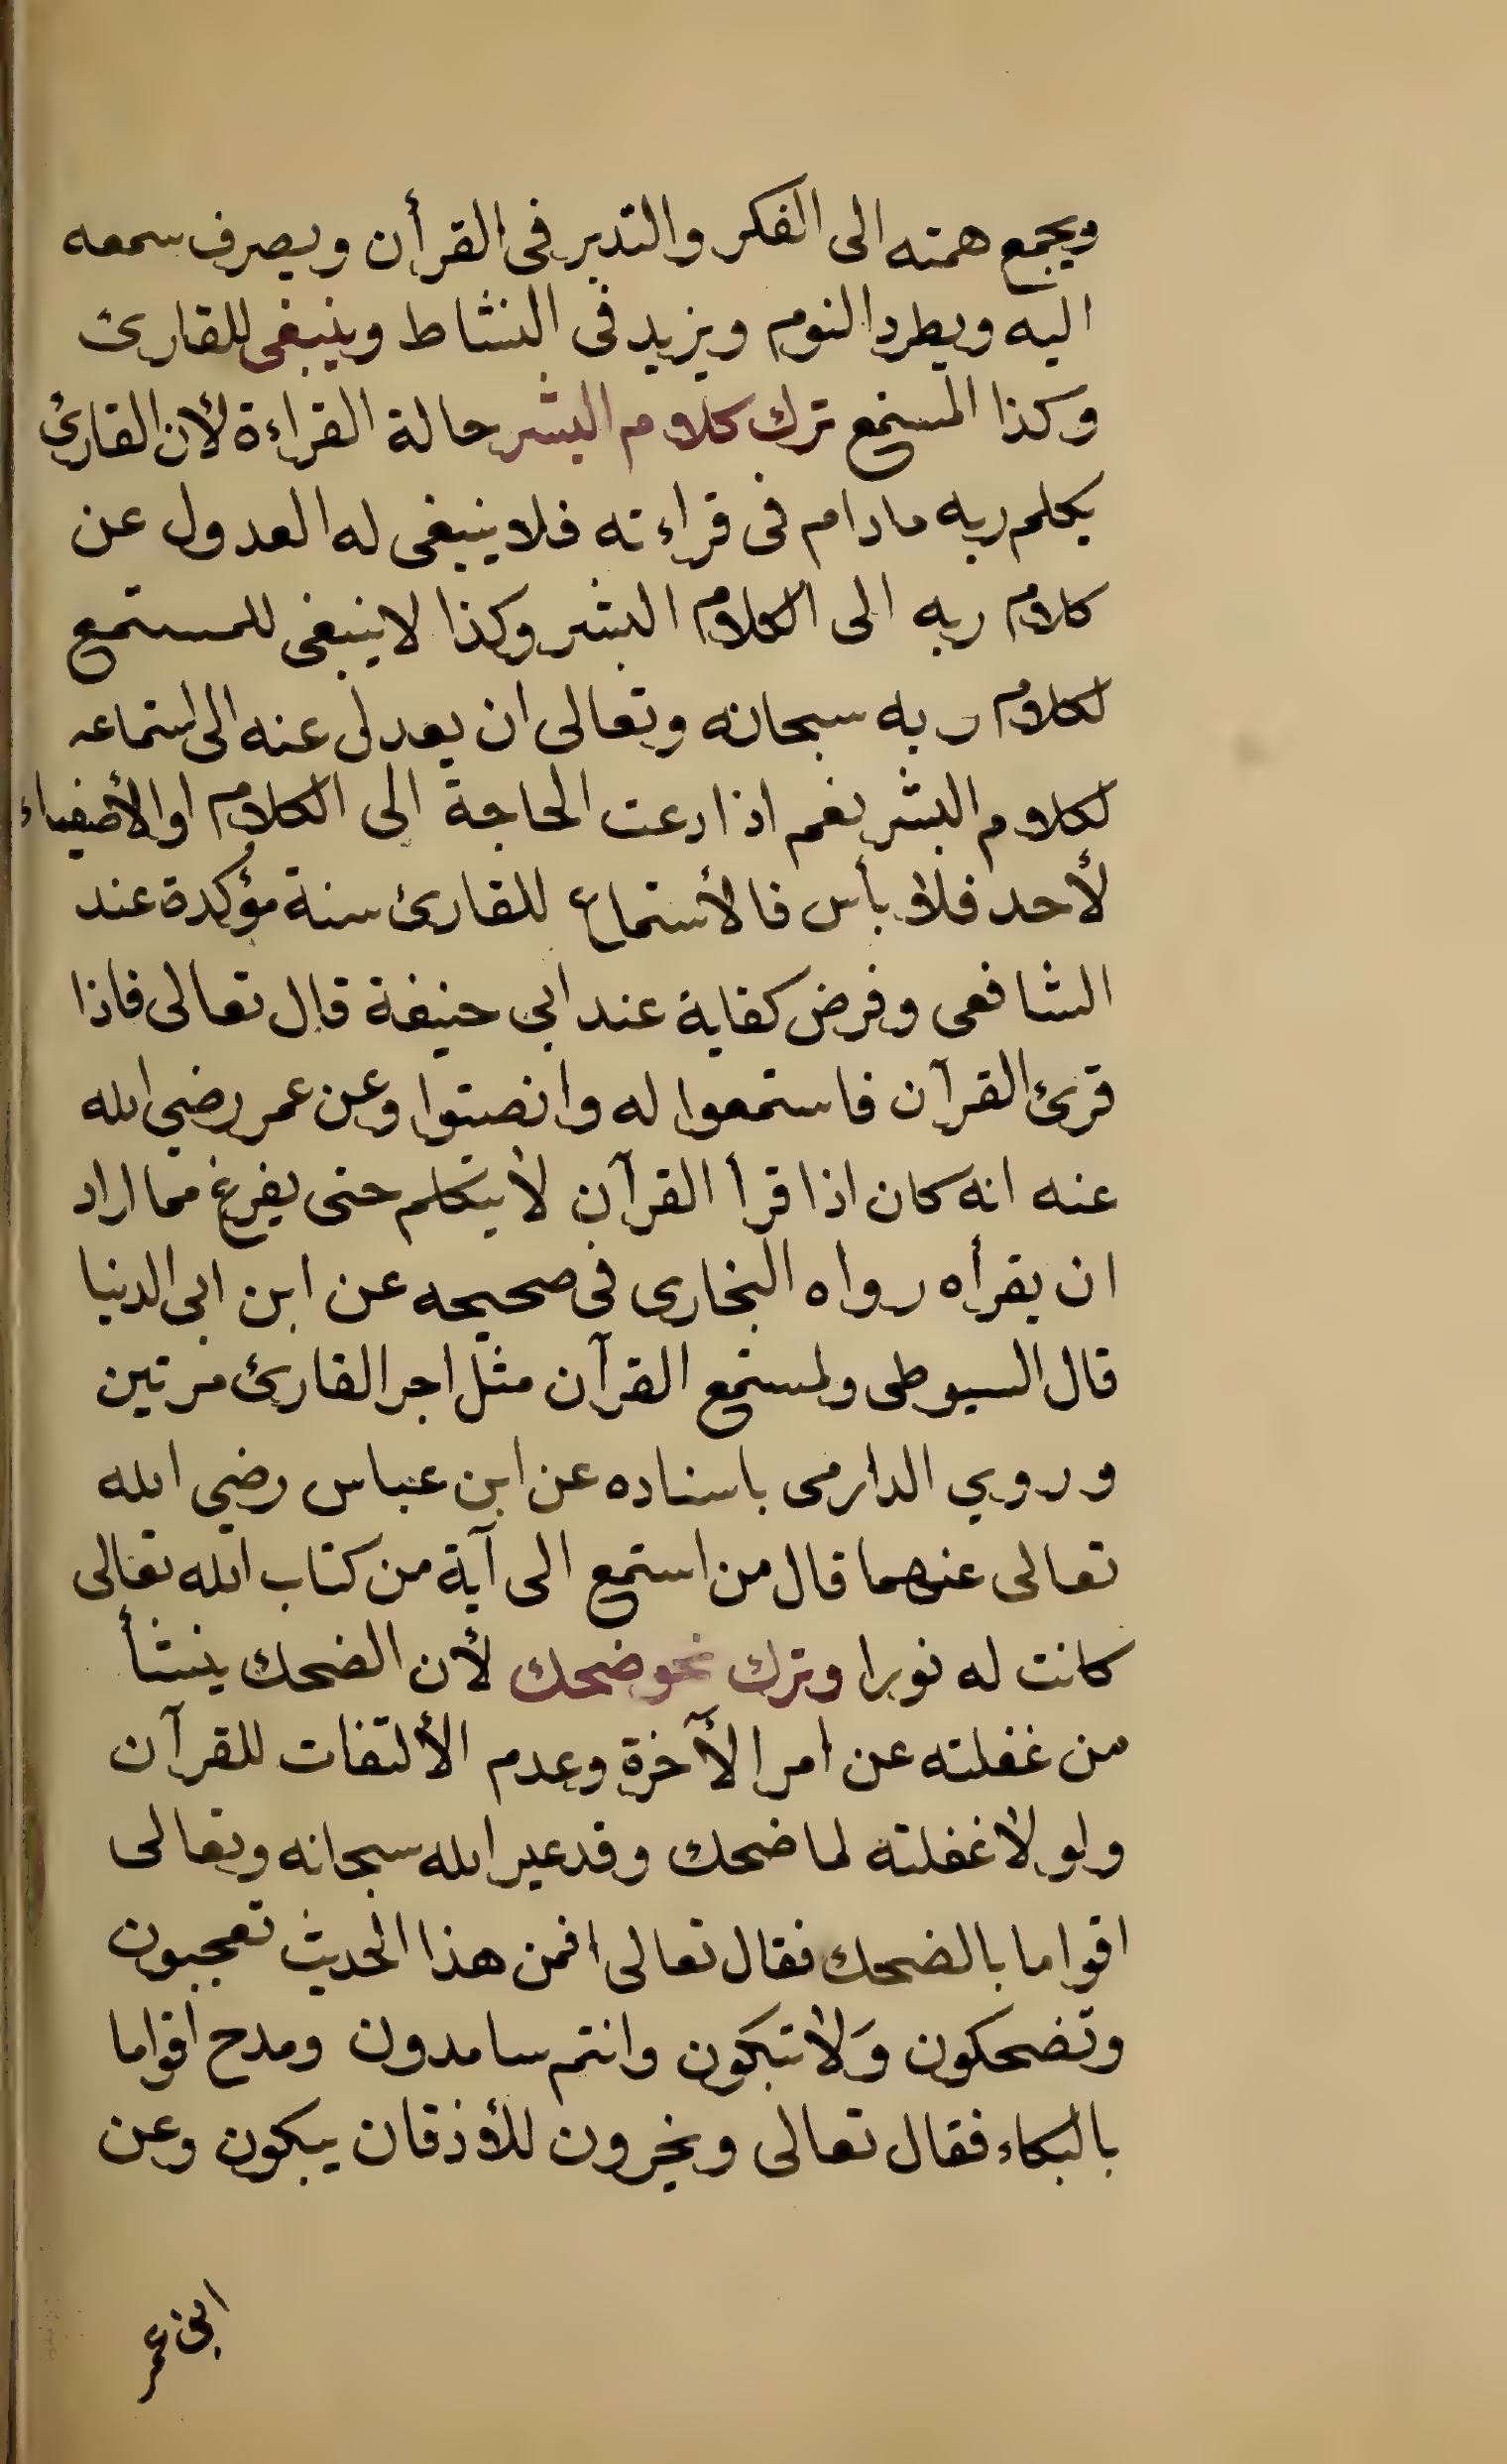 ويجمع همته الى الفكر والتدبر فى القرأن ويصرف سمعه
اليه ويطرد النوم ويزيد فى النشاط وينبغى للقارئ
وكذا المستمع ترك كلام البشر حالة القراءة لأن القارئ
يكلم ربه مادام فى قراءته فلا ينبغى له العدول عن
كلام ربه الى الكلام البشر وكذا لا ينبغى للمستمع
لكلام ربه سبحانه وتعالى ان يعدل عنه الى استماعه
لكلام البشر نعم اذا دعت الحاجة الى الكلام او الأصغياء
لأحد فلا بأس فالأستماع للقارئ سنة مؤكدة عند
الشافعى وفرض كفاية عند ابي حنيفة قال تعالى فاذا
قرئ القرآن فاستمعوا له وانصتوا وعن عمر رضي الله
عنه انه كان اذا قرأ القرآن لا يتكلم حتى يفرغ مما اراد
ان يقرأه رواه البخارى فى صحيحه عن ابن ابى الدنيا
قال السيوطى ولمستمع القرآن مثل اجر القارئ مرتين
وروي الدارمى باسناده عن ابن عباس رضي الله
تعالى عنهما قال من استمع الى آية من كتاب الله تعالى
كانت له نورا وترك نحو ضحك لأن الضحك ينشأ
من غفلته عن امر الآخرة وعدم الألتفات للقرآن
ولولا غفلته لما ضحك وقد عير الله سبحانه وتعالى
اقواما بالضحك فقال تعالى افمن هذا الحديث تعجبون
وتضحكون وَلا تبكون وانتم سامدون ومدح اقواما
بالبكاء فقال تعالى ويخرون للأذقان يبكون وعن
ابن عمر